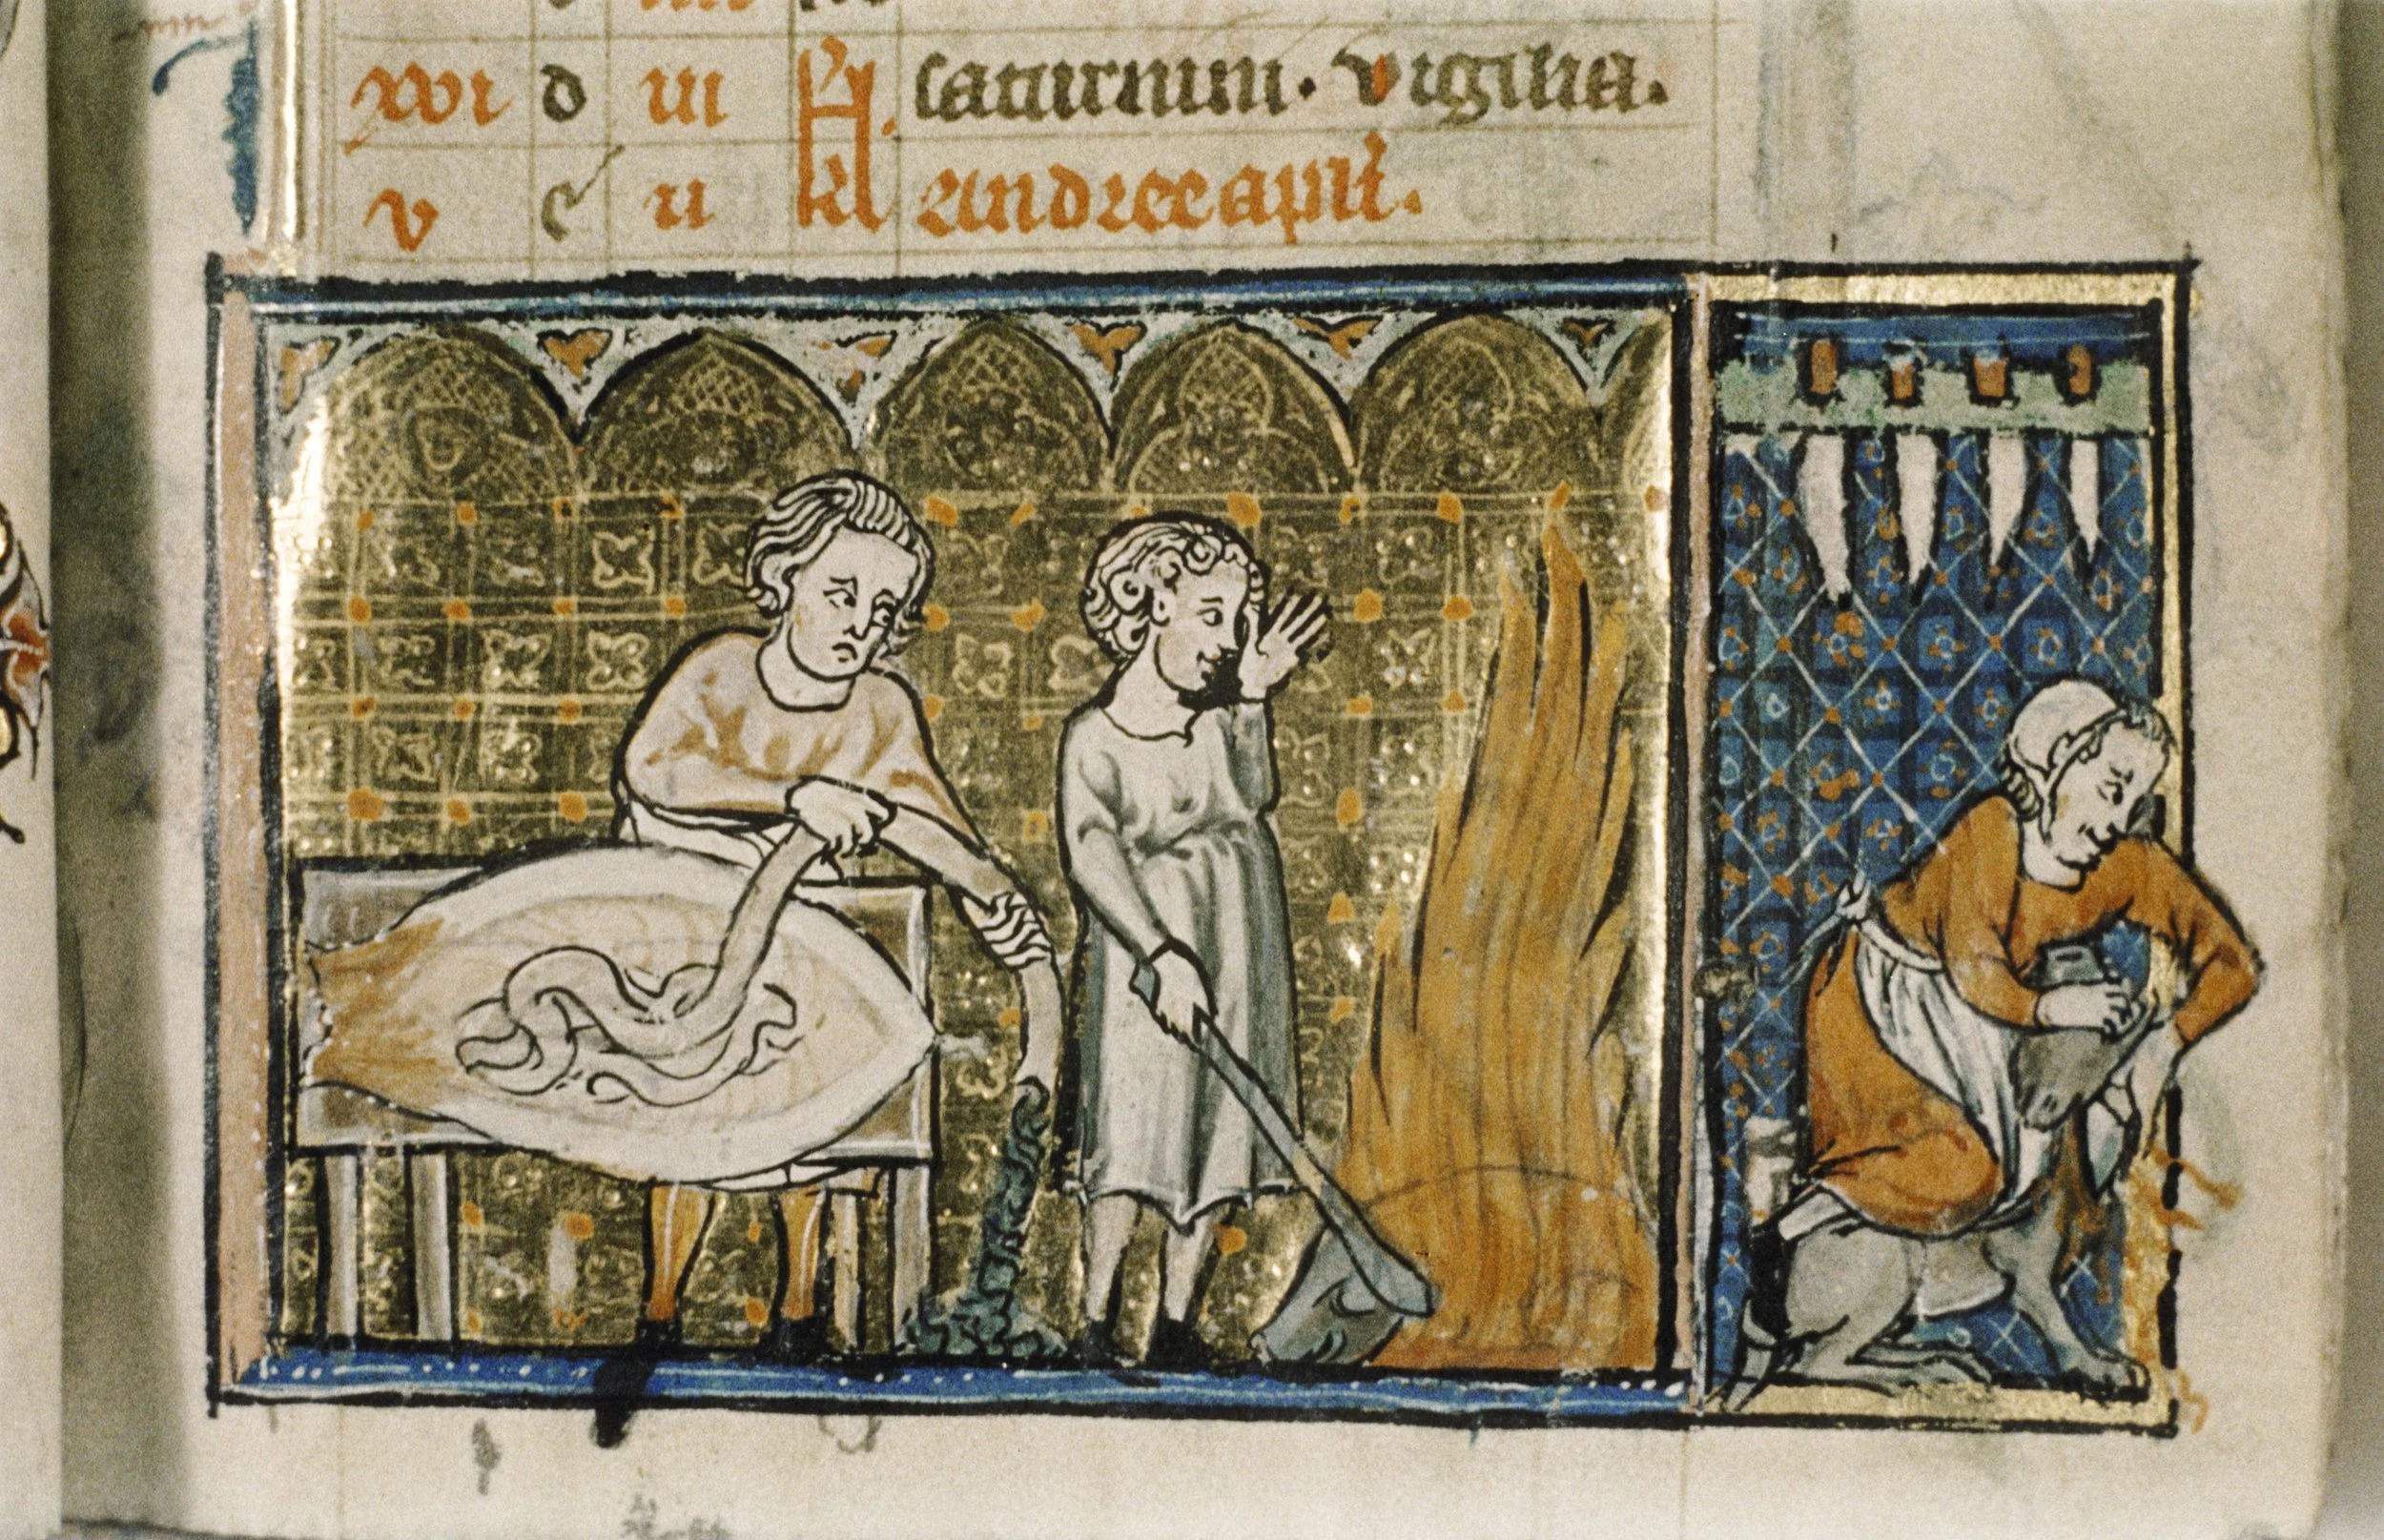 xvi d iii kl. saturnini. vigilia.
v e ii kl andree apli.